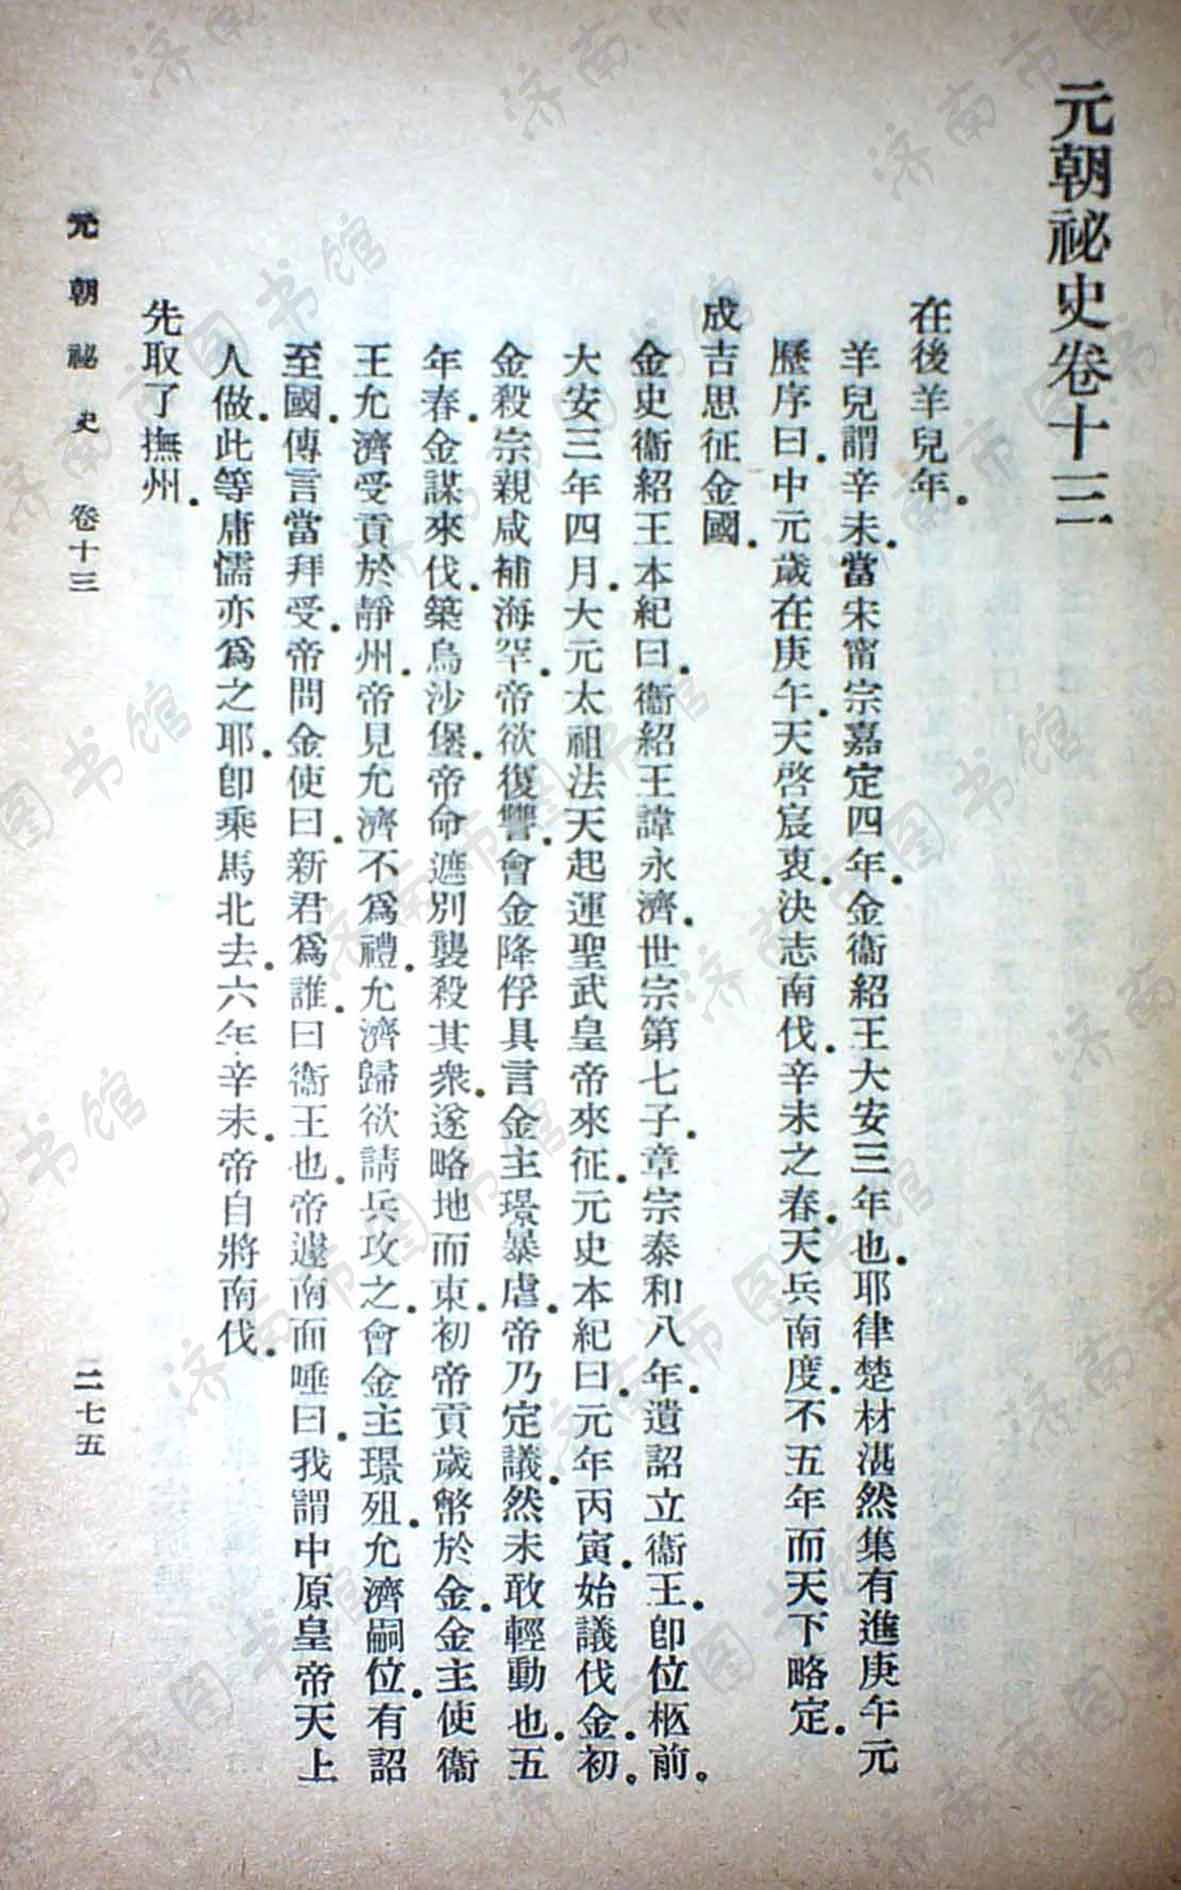 元朝祕史卷十三
在後羊兒年．
羊兒謂辛未．當宋甯宗嘉定四年．金衞紹王大安三年也．耶律楚材湛然集有進庚午元
歷序曰．中元歲在庚午．天啓宸衷．決志南伐．辛未之春．天兵南度．不五年而天下略定．
成吉思征金國．
金史衞紹王本紀曰．衞紹王諱永濟．世宗第七子．章宗泰和八年．遺詔立衞王．卽位柩前。
大安三年四月．大元太祖法天起運聖武皇帝來征．元史本紀曰．元年丙寅．始議伐金．初。
金殺宗親咸補海罕．帝欲復讐．會金降俘具言金主璟暴虐．帝乃定議．然未敢輕動也．五
年春．金謀來伐．築烏沙堡．帝命遮別襲殺其衆．遂略地而東．初帝貢歲幣於金．金主使衞
王允濟受貢於靜州．帝見允濟不爲禮．允濟歸欲請兵攻之．會金主璟殂．允濟嗣位．有詔
至國．傳言當拜受．帝問金使曰．新君爲誰．曰衞王也．帝遽南面唾曰．我謂中原皇帝天上
人做．此等庸懦亦爲之耶．卽乘馬北去．六年辛未．帝自將南伐．
先取了撫州．
元朝祕史 卷十三
二七五
济南市图书馆